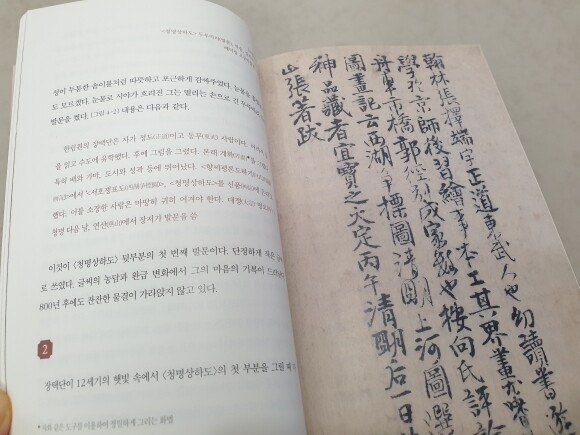 성이 두툼한 솜이불처럼 따뜻하고 포근하게 감싸주었다. 눈물을
도 모르겠다. 눈물로 시야가 흐려진 그는 떨리는 손으로 긴 두루
발문을 썼다. (그림 4-2) 내용은 다음과 같다.
한림원의 장택단은 자가 정도(正道)이고 동무(東武) 사람이다.
을 읽고 수도에 유학했다. 후에 그림을 그렸다. 본래 계화(界畵)*를
특히 배와 가마, 도시와 성곽 등에 뛰어났다.
에서 〈서호쟁표도(西湖爭標圖)〉, 〈청명상하도〉를 신품
했다. 이를 소장한 사람은 마땅히 귀히 여겨야 한다. 대정(大定)
청명 다음 날, 연산(燕山)에서 장저가 발문을 씀
이것이 〈청명상하도〉 뒷부분의 첫 번째 발문이다. 단정하게 작은
로 쓰였다. 글씨의 농담과 완급 변화에서 그의 마음의 기복이 드러난다.
800년 후에도 잔잔한 물결이 가라앉지 않고 있다.
2
장택단이 12세기의 햇빛 속에서 〈청명상하도〉의 첫 부분을 그릴 때
* 자와 같은 도구를 이용하여 정밀하게 그리는 화법
翰林張擇端字正道東武人也幼讀書游
學於京師後習繪事本工其界畫尤嗜
舟車市橋郭徑別成家數也按向氏評論
圖畫記云西湖爭標圖清明上河圖選
神品藏者宜寶之大定丙午清明后一日
山張著跋